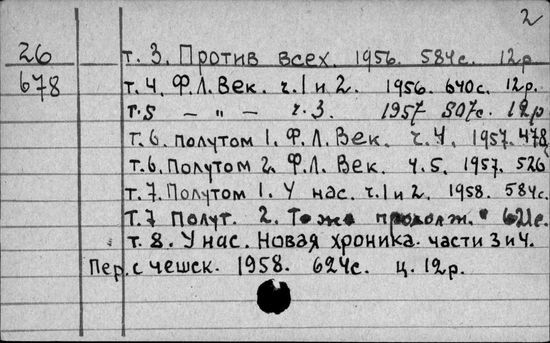 2
26
678
т. 3. Против всех. 1956. 584с. 12р.
т. 4. Ф.Л.Век. ч.1 и 2. 1956. 640с. 12р.
т.5 — " — ч.3. 1957 507с. 12р
т.6. полутом 1. Ф.Л.Век. ч.4. 1957. 478с
т.6. Полутом 2. Ф.Л.Век. ч.5. 1957. 526
т.7. Полутом 1. У нас. ч.1 и 2. 1958. 584с.
т.7 Полут. 2. То же продолж. 621с.
т. 8. У нас. Новая хроника. части 3 и 4.
Пер. с чешск. 1958. 624с. ц. 12р.